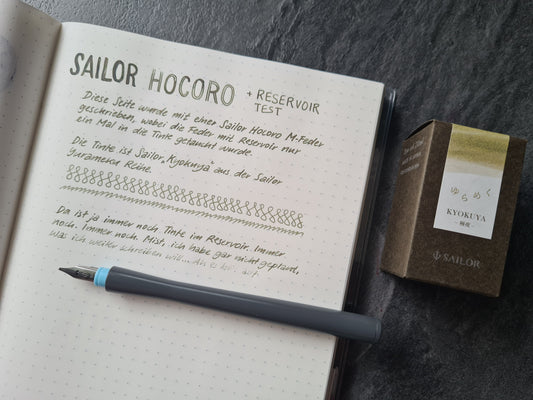 SAILOR HOCORO + RESERVOIR
TEST
Diese Seite wurde mit einer Sailor Hocoro M-Feder
geschrieben, wobei die Feder mit Reservoir nur
ein Mal in die Tinte getaucht wurde.
Die Tinte ist Sailor „Kyokuya“ aus der Sailor
Yurameku Reihe.
Da ist ja immer noch Tinte im Reservoir. Immer
noch. Immer noch. Mist, ich habe gar nicht geplant,
was ich weiter schreiben will...
ゆらめく
KYOKUYA
SAILOR